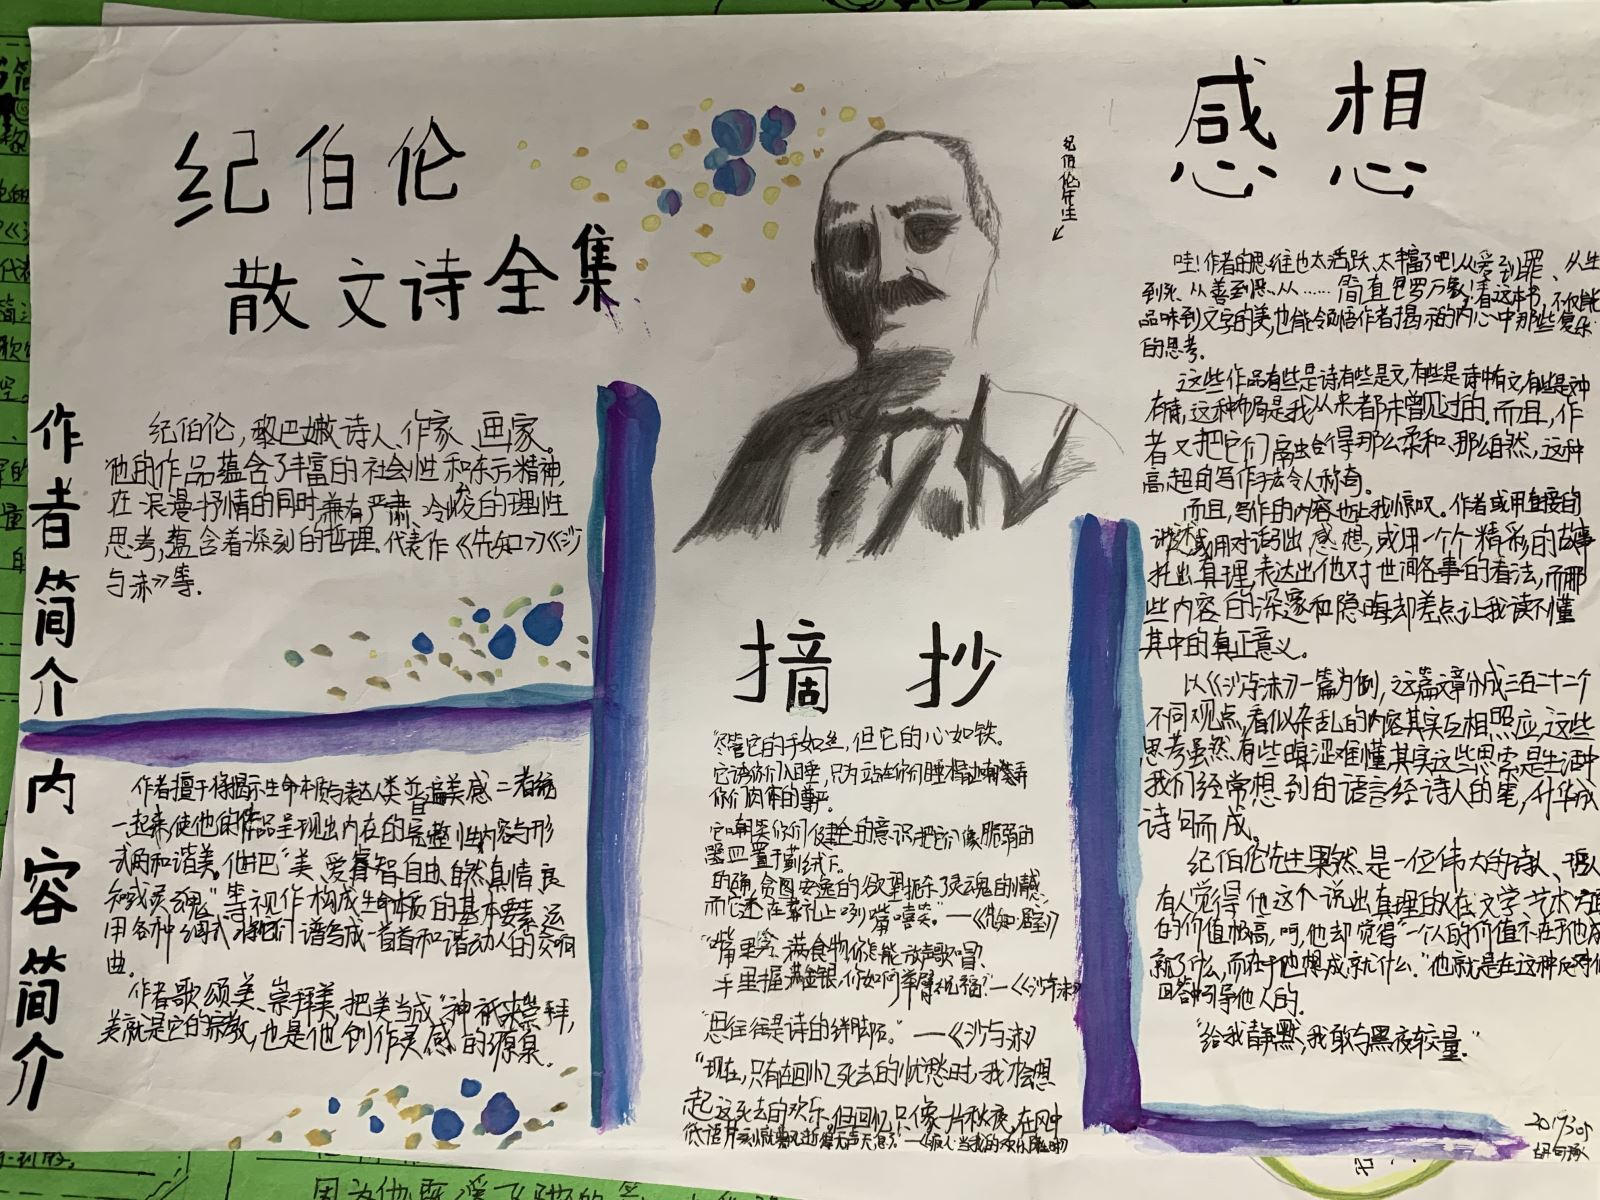 纪伯伦
散文诗全集
作者简介
纪伯伦，黎巴嫩诗人、作家、画家。
他的作品蕴含了丰富的社会性和东方精神，
在浪漫抒情的同时，兼有严肃、冷峻的理性
思考，蕴含着深刻的哲理。代表作《先知》《沙
与沫》等。
内容简介
作者擅于将揭示生命本质与表达人类普遍美感二者统
一起来，使他的作品呈现出内在的完整性，内容与形
式的和谐美。他把“美、爱、睿智、自由、自然、真情、良
知或灵魂”等视作构成生命本质的基本要素，运
用各种调式将他们谱写成一首首和谐动人的交响
曲。
作者歌颂美、崇拜美，把美当成“神”祇来崇拜，
美就是它的宗教，也是他创作灵感”的源泉。
纪伯伦先生
摘抄
“尽管它的手如丝，但它的心如铁。
它诱你们入睡，只为站在你们睡榻边嘲弄
你们肉体的尊严。
它嘲笑你们健全的意识，把它们像脆弱的
器皿置于蓟绒下。
的确，贪图安逸的欲望扼杀了灵魂的情感，
而它还在葬礼上咧嘴嘻笑。”——《先知·居室》
“嘴里含满食物，你怎能放声歌唱？
手里握满金银，你如何举臂祝福？”——《沙与沫》
“思往往是诗的绊脚石。”——《沙与沫》
“现在，只有在回忆死去的忧愁时，我才会想
起这死去的欢乐。但回忆只像一片秋夜，在风中
低语片刻
感想
哇！作者的思维也太活跃、太丰富了吧！从爱到罪、从生
到死、从善到恶、从……简直包罗万象！看这本书，不仅能
品味到文字的美，也能领悟作者揭示的内心中那些复杂
的思考。
这些作品有些是诗有些是文，有些是诗中有文，有些是文中
有情，这种布局是我从来都未曾见过的。而且，作
者又把它们融合得那么柔和、那么自然，这种
高超的写作手法令人称奇。
而且，写作的内容也让我惊叹。作者或用直接的
讲述，或用对话引出感想，或用一个个精彩的故事
托出真理，表达出他对世间各事的看法，而那
些内容的深邃和隐晦却差点让我读不懂
其中的真正意义。
以《沙与沫》一篇为例，这篇文章分成三百二十二个
不同观点，看似杂乱的内容其实互相照应，这些
思考虽然有些晦涩难懂，其实这些思索是生活中
我们经常想到的语言经诗人的笔，升华成
诗句而成。
纪伯伦先生果然是一位伟大的诗人、
有人觉得他这个说出真理的人在文学艺术方面
的价值极高，呵，他却觉得“一个人的价值不在于他成
就了什么，而在于他想成就什么。”他就是在这种
回答中引导他人的。
“给我静默，我敢与黑夜较量。”